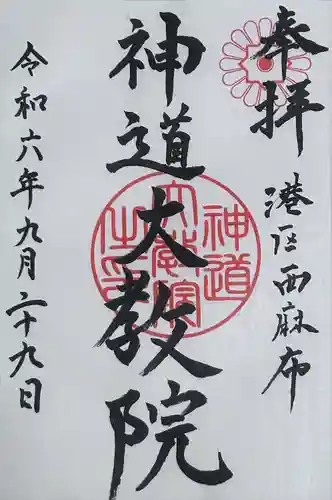 奉拝
港区西麻布
神道大教院
令和六年九月二十九日
神道大教院之印